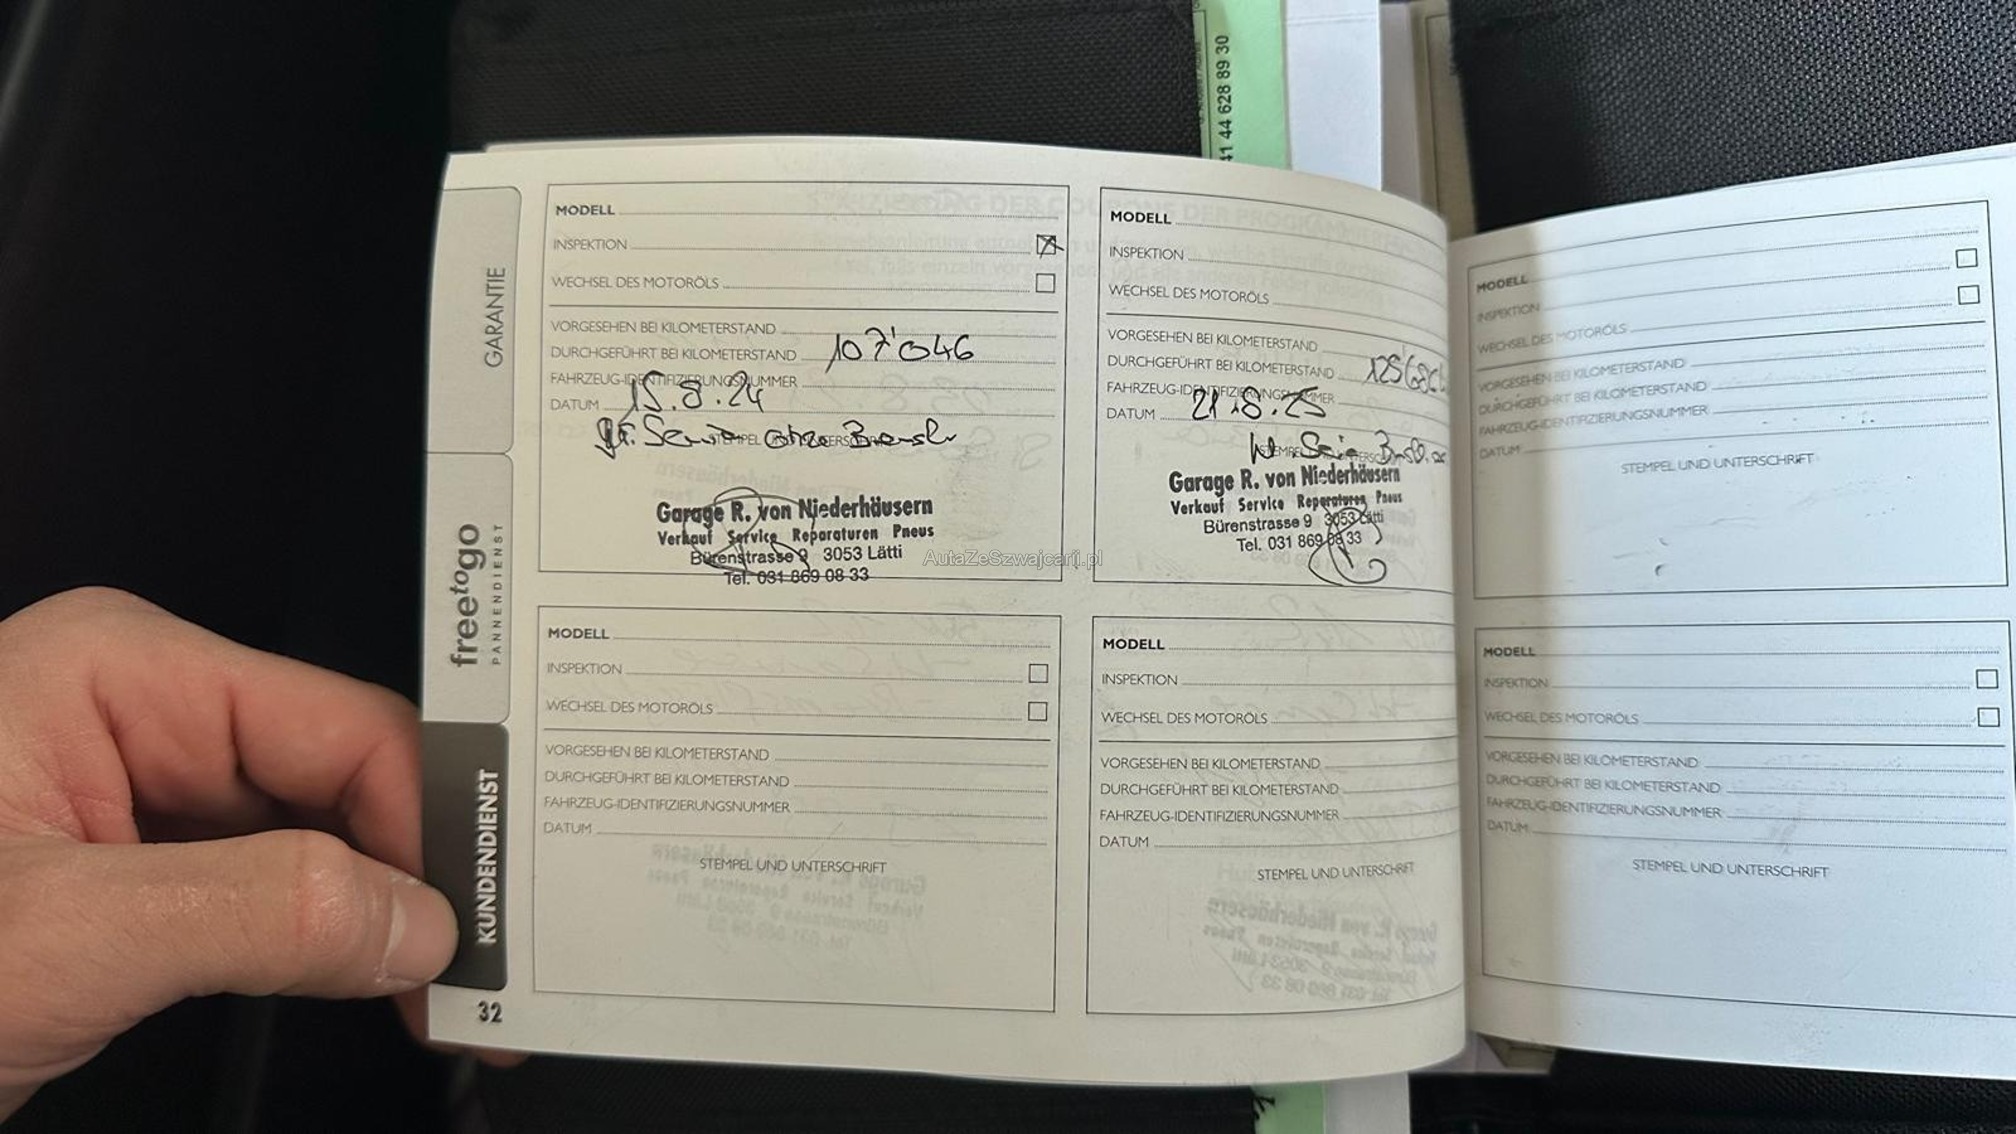 41 44 628 89 30
GARANTIE
freetogo
PANNENDIENST
KUNDENDIENST
32
MODELL
INSPEKTION
WECHSEL DES MOTORÖLS
VORGESEHEN BEI KILOMETERSTAND
DURCHGEFÜHRT BEI KILOMETERSTAND 107'046
FAHRZEUG-IDENTIFIZIERUNGSNUMMER
DATUM 15.8.24
Garage R. von Niederhäusern
Verkauf Service Reparaturen Pneus
Bürenstrasse 9 3053 Lätti
Tel. 031 869 08 33
MODELL
INSPEKTION
WECHSEL DES MOTORÖLS
VORGESEHEN BEI KILOMETERSTAND
DURCHGEFÜHRT BEI KILOMETERSTAND
FAHRZEUG-IDENTIFIZIERUNGSNUMMER
DATUM 21.8.25
Garage R. von Niederhäusern
Verkauf Service Reparaturen Pneus
Bürenstrasse 9 3053 Lätti
Tel. 031 869 08 33
AutaZeSzwajcarii.pl
MODELL
INSPEKTION
WECHSEL DES MOTORÖLS
VORGESEHEN BEI KILOMETERSTAND
DURCHGEFÜHRT BEI KILOMETERSTAND
FAHRZEUG-IDENTIFIZIERUNGSNUMMER
DATUM
STEMPEL UND UNTERSCHRIFT
MODELL
INSPEKTION
WECHSEL DES MOTORÖLS
VORGESEHEN BEI KILOMETERSTAND
DURCHGEFÜHRT BEI KILOMETERSTAND
FAHRZEUG-IDENTIFIZIERUNGSNUMMER
DATUM
STEMPEL UND UNTERSCHRIFT
MODELL
INSPEKTION
WECHSEL DES MOTORÖLS
VORGESEHEN BEI KILOMETERSTAND
DURCHGEFÜHRT BEI KILOMETERSTAND
FAHRZEUG-IDENTIFIZIERUNGSNUMMER
DATUM
STEMPEL UND UNTERSCHRIFT
MODELL
INSPEKTION
WECHSEL DES MOTORÖLS
VORGESEHEN BEI KILOMETERSTAND
DURCHGEFÜHRT BEI KILOMETERSTAND
FAHRZEUG-IDENTIFIZIERUNGSNUMMER
DATUM
STEMPEL UND UNTERSCHRIFT